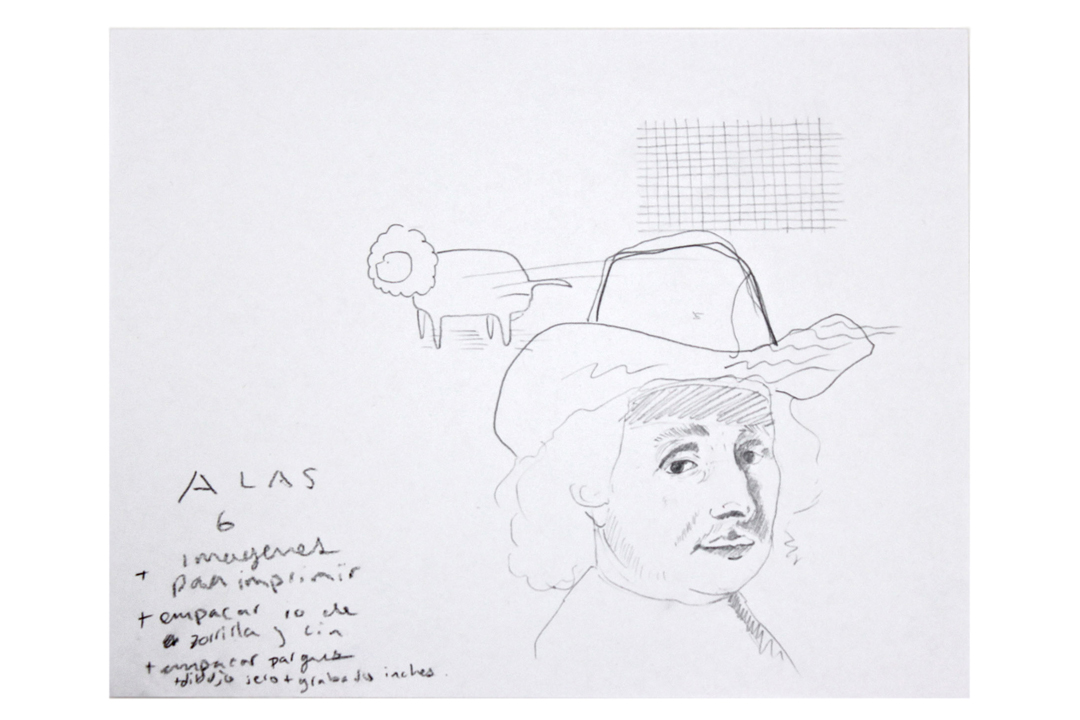 A LAS
6
imagenes
+ para imprimir
+ empacar 10 de
zorrilla y
+ empacar
+ dibujo + grabados inches.